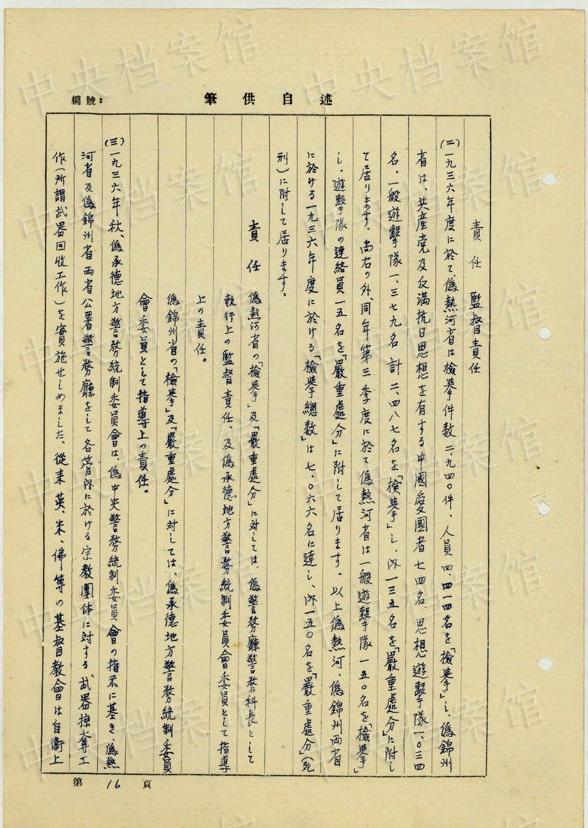 編號：
筆供自述
責任　監督責任
(二)一九三六年度に於て、偽熱河省は検挙件数二、九四〇件、人員四、四一四名を「検挙」し、偽錦州
省は、共産党及反満抗日思想を有する中國愛國者七四名、思想遊撃隊一、〇三四
名、一般遊撃隊一、三七九名　計二、四八七名を「検挙」し、内一三五名を「嚴重處分」に附し
て居ります。尚右の外、同年第三季度に於て偽熱河省は一般遊撃隊一五〇名を「検挙」
し、遊撃隊の連絡員一五名を「嚴重處分」に附して居ります。以上偽熱河、偽錦州両省
に於ける一九三六年度に於ける「検挙總数」は七、〇六六名に達し、内一五〇名を「嚴重處分」(死
刑)に附して居ります。
責　任　偽熱河省の「検挙」及「嚴重處分」に対しては、偽警務廳警務科長として
執行上の監督責任、及偽承徳地方警務統制委員會委員として指導
上の責任。
偽錦州省の「検挙」及「嚴重處分」に対しては、偽承徳地方警務統制委員
會委員として指導上の責任。
(三)一九三六年秋、偽承徳地方警務統制委員會は、偽中央警務統制委員會の指示に基き、偽熱
河省及偽錦州省両省公署警務廳をして各管内に於ける宗教團体に対する、武器掠奪工
作(所謂武器回收工作)を實施せしめました。従来英、米、佛等の基督教會は自衛上
第 16 頁
中央档案馆